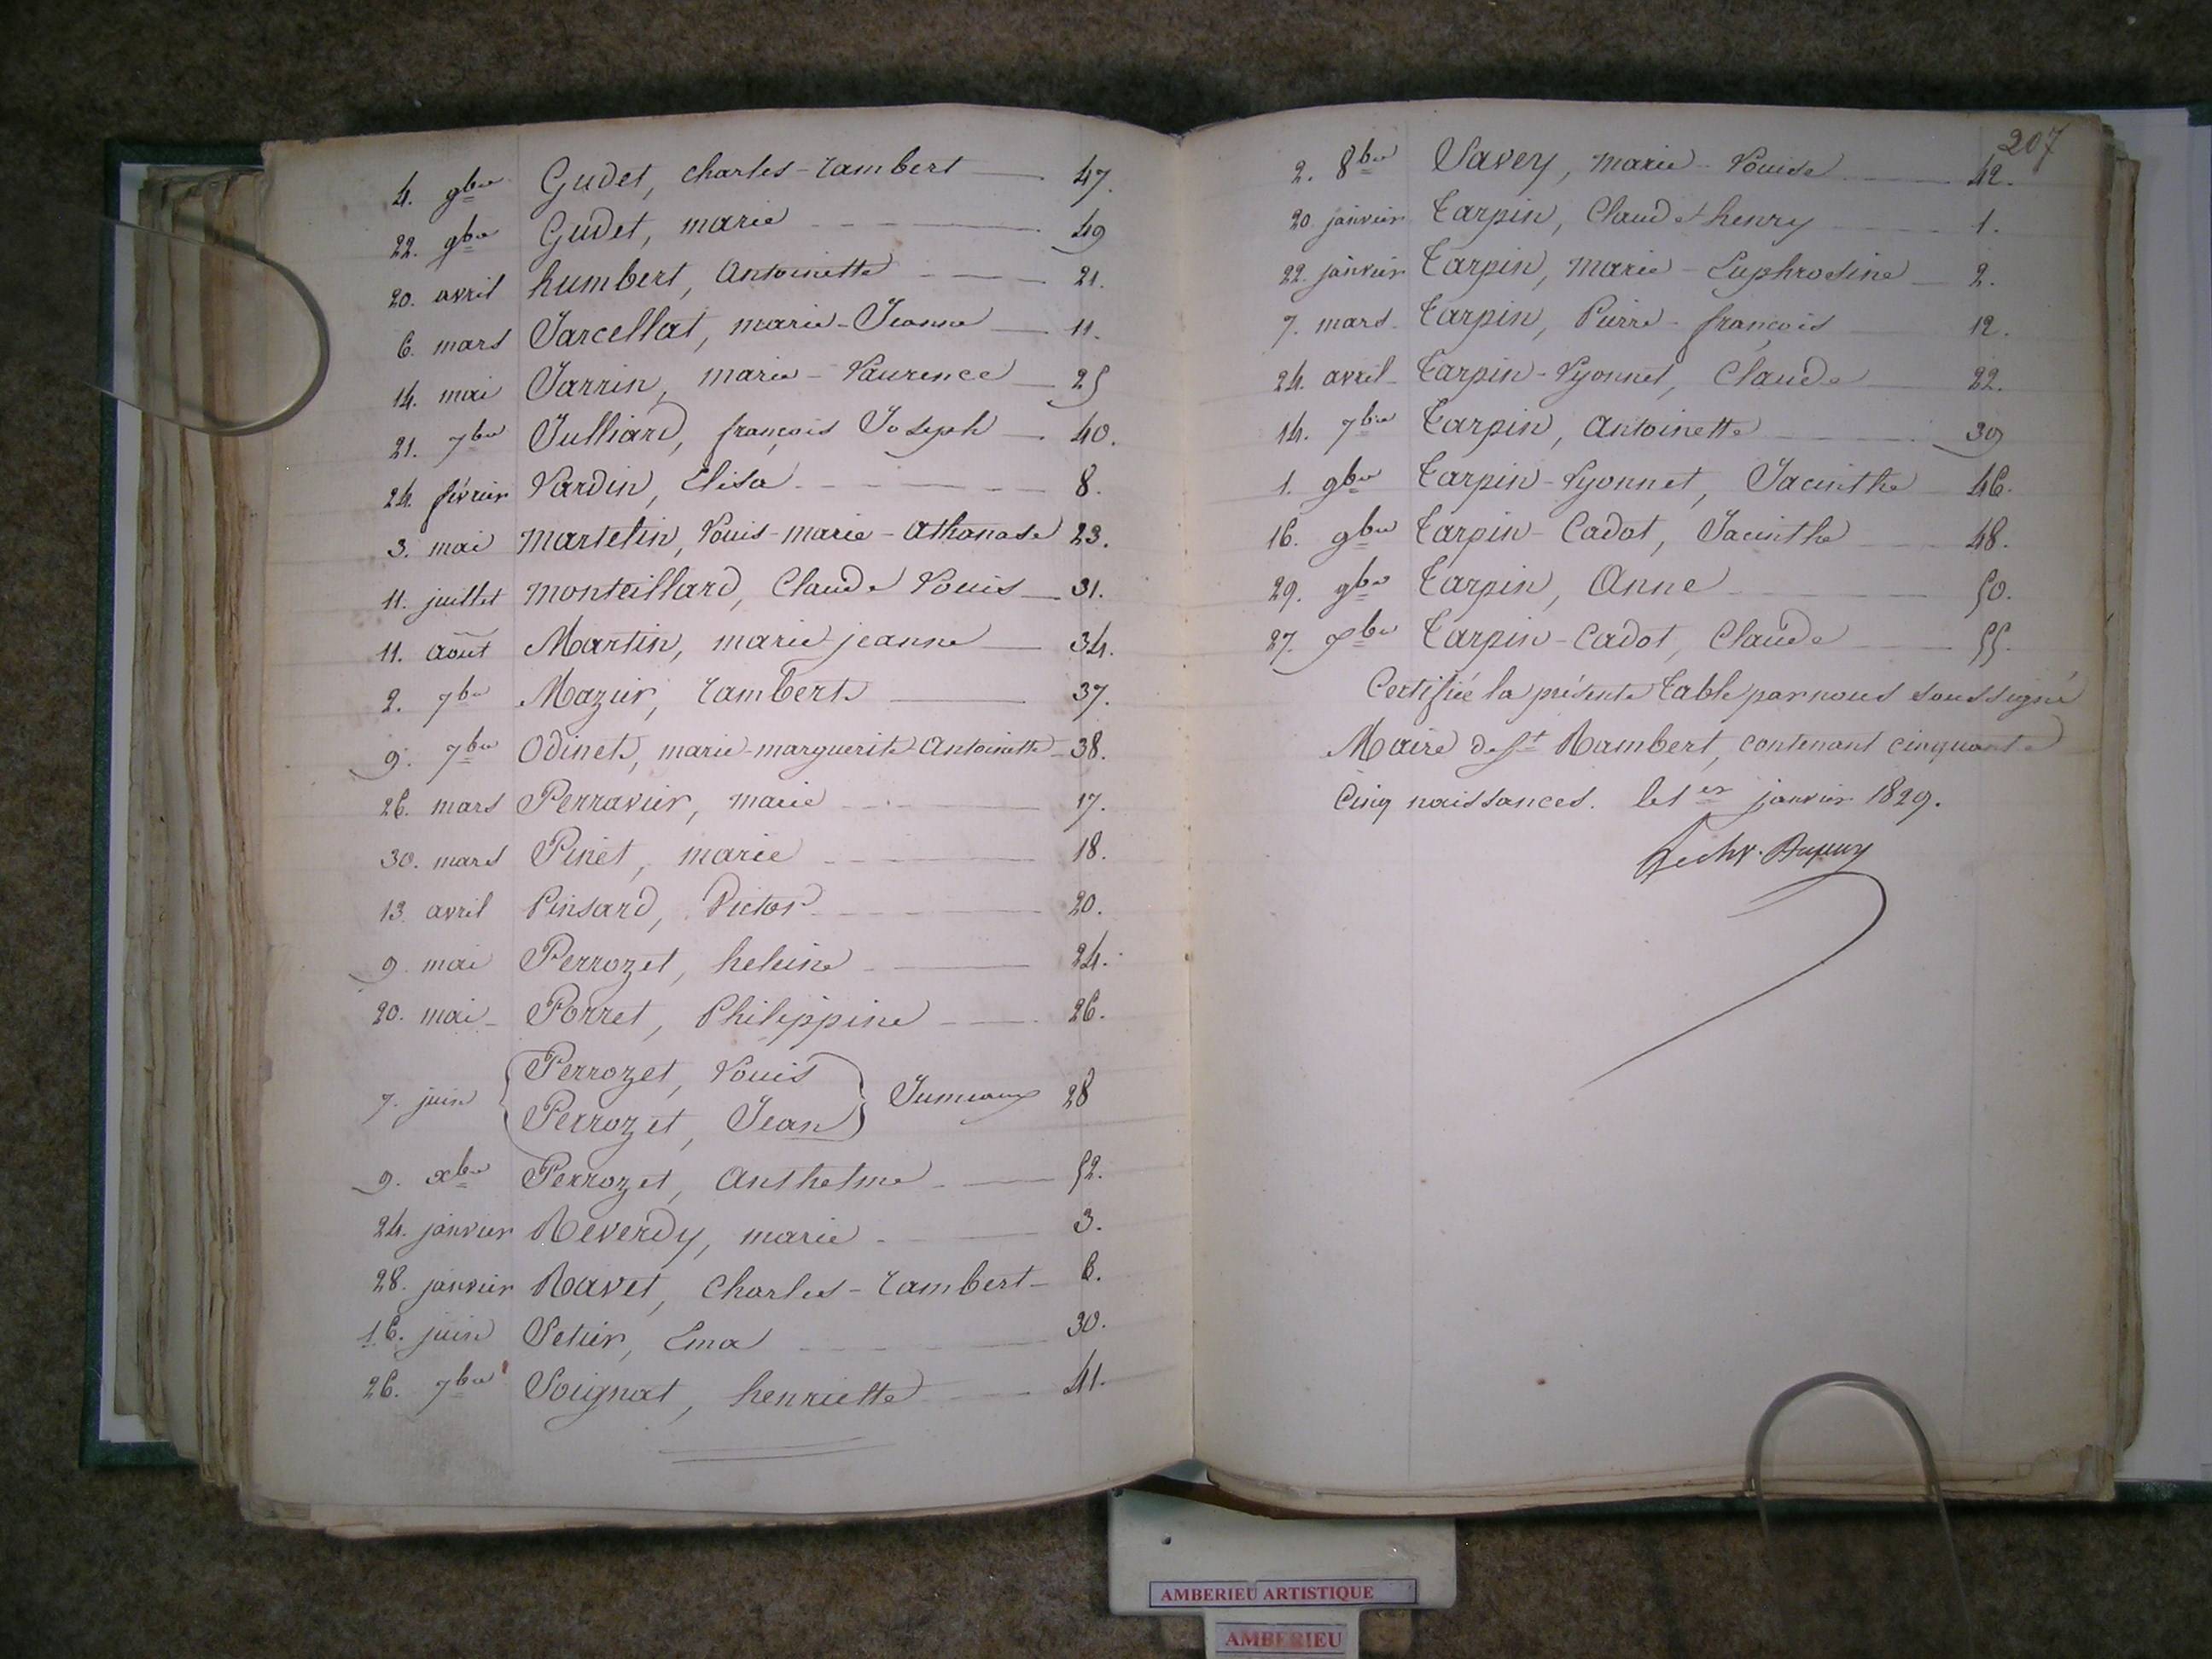 4. 9bre Gudet, charles-rambert 47.
22. 9bre Gudet, marie 49
20. avril humbert, Antoinette 21.
6. mars Jarcellat, marie-Jeanne 11.
14. mai Jarrin, marie-Laurence 25
21. 7bre Julliard, françois Joseph 40.
24. février Lardin, Elisa 8.
3. mai martelin, Louis-marie-Athanase 23.
11. juillet monteillard, Claude Louis 31.
11. août Martin, marie jeanne 34.
2. 7bre Mazuir, rambert 37.
9. 7bre Odinet, marie-marguerite-Antoinette 38.
26. mars Perravier, marie 17.
30. mars Pinet, marie 18.
13. avril Pinsard, Victor 20.
9. mai Perrozet, heleine 24.
20. mai Porret, Philippine 26.
Perrozet, Louis
7. juin Jumeaux 28
Perrozet, Jean
9. xbre Perrozet, Anthelme 52.
24. janvier Reverdy, marie 3.
28. janvier Ravet, Charles-rambert 6.
16. juin Setier, Ema 30.
26. 7bre Soignat, henriette 41.
207
2. 8bre Savey, marie-Louise 42.
20 janvier Tarpin, Claude-henry 1.
22. janvier Tarpin, marie-Euphrosine 2.
7. mars Tarpin, Pierre-françois 12.
24. avril Tarpin-Lyonnet, Claude 22.
14. 7bre Tarpin, Antoinette 39
1. 9bre Tarpin-Lyonnet, Jacinthe 46.
16. 9bre Tarpin-Cadot, Jacinthe 48.
29. 9bre Tarpin, Anne 50.
27. xbre Tarpin-Cadot, Claude 55.
Certifiée la présente Table par nous soussigné
Maire de St Rambert, contenant cinquante
Cinq naissances. le 1er janvier 1829.
Dupuy
AMBERIEU ARTISTIQUE
AMBERIEU